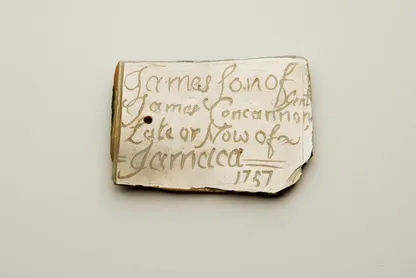 James Son of
James Concannon Gent
Late or Now of
=Jamaica=
1757